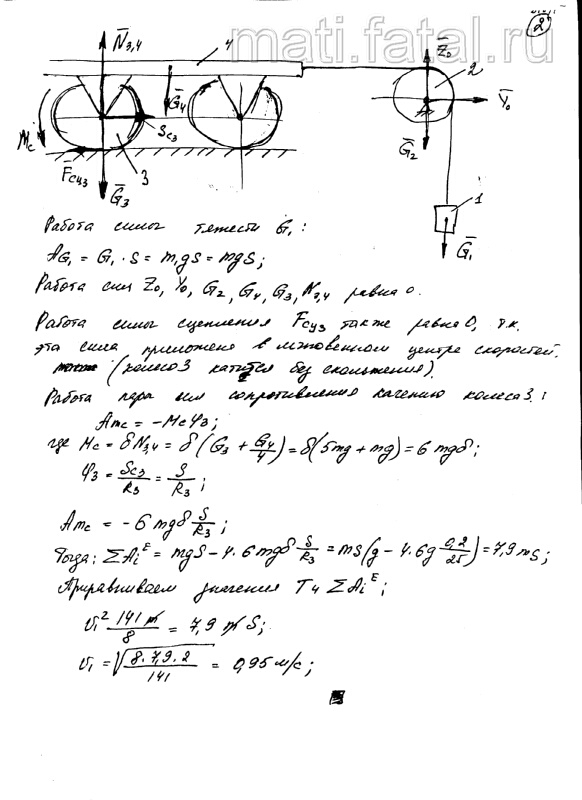 mati.fatal.ru
2
N̄₃,₄
4
Z̄₀
2
Ȳ₀
Ḡ₄
Sc₃
Mc
Ḡ₂
F̄сц₃
3
Ḡ₃
1
Ḡ₁
Работа силы тяжести G₁:
A_G₁ = G₁ · S = m₁gS = mgS;
Работа сил Z₀, Y₀, G₂, G₄, G₃, N₃,₄ равна 0.
Работа силы сцепления Fсц₃ также равна 0, т.к.
эта сила приложена в мгновенном центре скоростей.
(колесо 3 катится без скольжения).
Работа пары сил сопротивления качению колеса 3:
Amc = −Mcφ₃;
где Mc = δN₃,₄ = δ(G₃ + G₄/4) = δ(5mg + mg) = 6mgδ;
φ₃ = Sc₃/R₃ = S/R₃;
Amc = −6mgδ S/R₃;
Тогда: ΣAᵢᴱ = mgS − 4·6mgδ S/R₃ = mS(g − 4·6g 0,2/25) = 7,9mS;
Приравниваем значения T и ΣAᵢᴱ;
v₁² 141m/8 = 7,9mS;
v₁ = √(8·7,9·2/141) = 0,95 м/с;